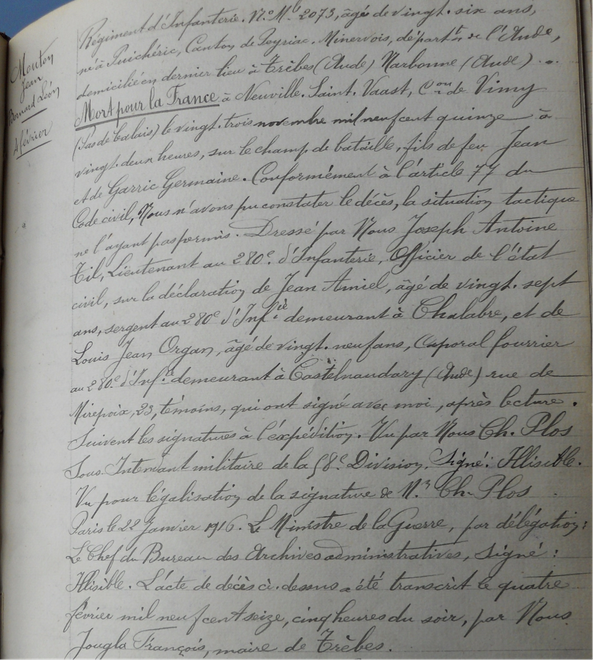 Mouton
Jean
Bernard Léon
4 février
Régiment d'Infanterie. N° Mle 2073, âgé de vingt-six ans,
né à Puichéric, Canton de Peyriac-Minervois, départt de l'Aude,
domicilié en dernier lieu à Trèbes (Aude) Narbonne (Aude).
Mort pour la France à Neuville-Saint-Vaast, Con de Vimy
(Pas de Calais) le vingt-trois novembre mil neuf cent quinze à
vingt-deux heures, sur le champ de bataille, fils de feu Jean
et de Garric Germaine. Conformément à l'article 77 du
Code civil, Nous n'avons pu constater le décès, la situation tactique
ne l'ayant pas permis. Dressé par Nous Joseph Antoine
Til, Lieutenant au 280e d'Infanterie, Officier de l'état
civil, sur la déclaration de Jean Amiel, âgé de vingt-sept
ans, sergent au 280e d'Infie demeurant à Chalabre, et de
Louis Jean Organ, âgé de vingt-neuf ans, Caporal fourrier
au 280e d'Infie demeurant à Castelnaudary (Aude) rue de
Mirepoix, 23, témoins, qui ont signé avec moi, après lecture.
Suivent les signatures à l'expédition. Vu par Nous Ch. Plos
Sous-Intendant militaire de la 58e Division. Signé: Illisible.
Vu pour légalisation de la signature de Mr Ch. Plos
Paris le 22 janvier 1916. Le Ministre de la Guerre, par délégation;
Le Chef du Bureau des Archives administratives, signé:
Illisible. L'acte de décès ci-dessus a été transcrit le quatre
février mil neuf cent seize, cinq heures du soir, par Nous
Jougla François, maire de Trèbes.